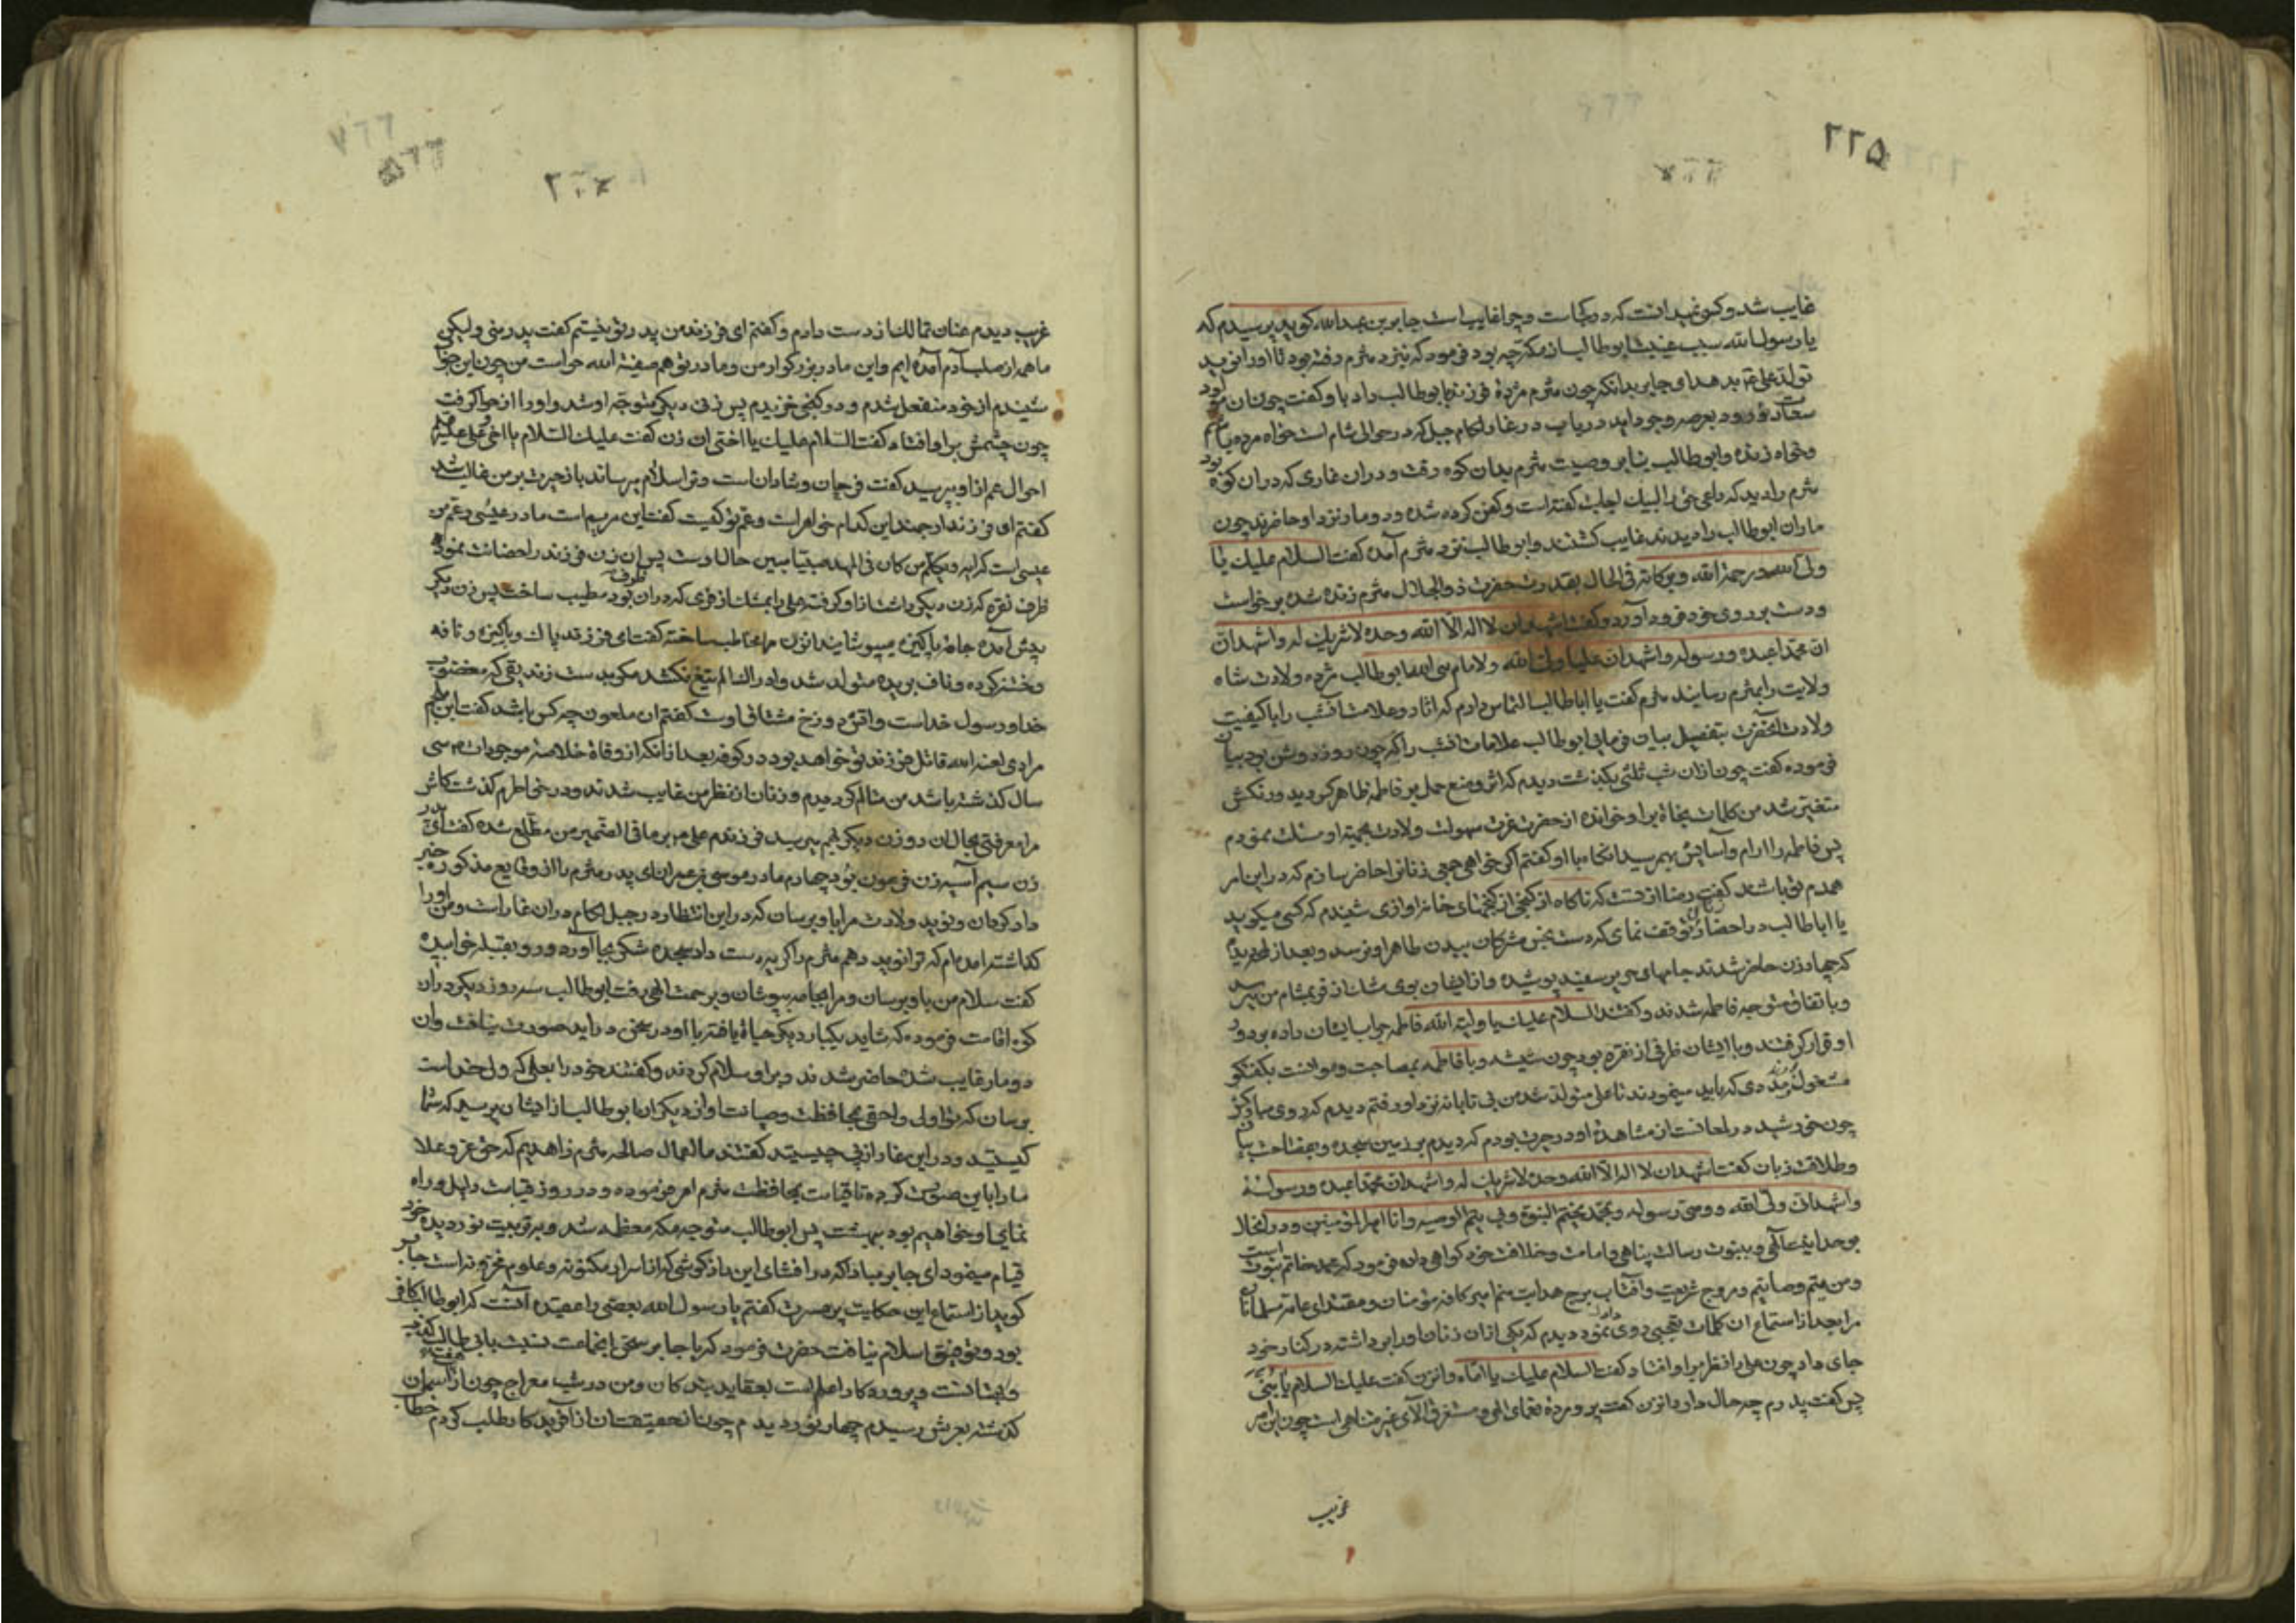 ۲۲۵
غایب شد و کس نمیدانست که در کجاست و چرا غایب است جابر بن عبدالله گوید پرسیدم که
یا رسول الله سبب غیبت ابوطالب از مکه چه بود فرمود که بنزد مثرم رفته بود تا او را نوید
تولد علی دهد ای جابر بدانکه چون مثرم مژدهٔ فرزند بابوطالب داد با او گفت چون آن
بعرصه وجود اید دریاب در غار لکام جبل که در حوالی شام است خواه مرده یا
وخواه زنده و ابوطالب بنا بر وصیت مثرم بدان کوه رفت و در ان غاری که دران کوه بود
مثرم را دید که داعی حق را لبیک اجابت گفته است و کفن کرده شده و دو مار نزد او حاضرند چون
ماران ابوطالب را دیدند غایب گشتند و ابوطالب نزد مثرم آمده گفت السلام علیک یا
ولی الله ورحمة الله وبرکاته فی الحال بقدرت حضرت ذوالجلال مثرم زنده شده برخواست
و دست بر روی خود فرود آورد و گفت اشهد ان لا اله الا الله وحده لا شریک له واشهد ان
ان محمدا عبده ورسوله واشهد ان علیا ولی الله ابوطالب مژده ولادت شاه
ولایت را بمثرم رسانید مثرم گفت یا اباطالب التماس دارم که اثار و علامت انشب را با کیفیت
ولادت انحضرت بتفصیل بیان فرمایی ابوطالب علامات انشب را که چون روز روشن بود بیان
فرموده گفت چون ازان شب ثلثی بگذشت دیدم که اثر وضع حمل بر فاطمه ظاهر گردید و رنگش
متغیر شد من کلمات نجاة براو خوانده از حضرت عزت سهولت ولادت بجهة او مسئلت نمودم
پس فاطمه را ارام و آسایش بهم رسید انگاه با او گفتم اگر خواهی جمعی زنان را حاضر سازم که در این امر
همدم تو باشند گفت رضا از تست که ناگاه از کنجی از کنجهای خانه اوازی شنیدم که کسی میگوید
یا اباطالب در احضار زنان توقف نمای که دست نجس مشرکان ببدن طاهر او نرسد و بعد از دیدم
که چهار زن حاضر شدند جامهای حریر سفید پوشیده و از ایشان بوی مشک از فر بمشام من میرسد
و باتفاق متوجه فاطمه شدند و گفتند السلام علیک یا ولیة الله فاطمه جواب ایشان داده بر دور
او قرار گرفتند و با ایشان ظرفی از نقره بود چون شیشه و با فاطمه بمصاحبت و موانست بگفتگو
مشغول و مددی که باید مینمودند تا علی متولد شد من بی تابانه نزد او رفتم دیدم که روی مبارکش
چون خورشید در لمعانست از مشاهدهٔ او در حیرت بودم که دیدم بر زمین سجده و بفصاحت بیان
وطلاقت زبان گفت اشهد ان لا اله الا الله وحده لا شریک له واشهد ان محمدا عبده ورسوله
واشهد ان ولی الله ووصی رسوله وبمحمد یختم النبوة وبی یتم الوصیه وانا امیرالمؤمنین و در انحال
بوحدانیت الهی و بنبوت رسالت پناهی و امامت و خلافت خود گواهی داده فرمود که محمد خاتم نبوت است
ومن میتم وصایتم و مروج شریعت و آفتاب برج هدایت منم امیر کافه مؤمنان و مقتدای عامه مسلمانان
مرا بعد از استماع ان کلمات تعجبی روی نمود دیدم که یکی از ان زنان او را برداشته در کنار خود
جای داد چون علی را نظر براو افتاد گفت السلام علیک یا اماه و ان زن گفت علیک السلام یا بنی
پس گفت پدرم چه حال دارد ان زن گفت پروردهٔ نعمای الهی و مستغرق آلای غیر متناهی است چون این امر
غریب
۲۰۰
غریب دیدم عنان تمالک از دست دادم و گفتم ای فرزند من پدر تو نیستم گفت پدر منی ولیکن
ما همه از صلب آدم آمده ایم و این مادر بزرگوار من و مادر تو هم صفیة الله حواست من چون این
شنیدم از خود منفعل شدم و در کنجی خزیدم پس زنی دیگر متوجه او شد و او را از حوا گرفت
چون چشمش براو افتاد گفت السلام علیک یا اختی ان زن گفت علیک السلام یا اخی
احوال عم از او پرسید گفت فرحان و شادان است و ترا سلام میرساند باز حیرت بر من غالب شد
گفتم ای فرزند ارجمند این کدام خواهر است و عم تو کیست گفت این مریم است مادر عیسی و عم من
عیسی است پس ان زن فرزند را حضانت نمود
ظرف نقره که زن دیگر داشت از او گرفته علی را بمشک از فری که در ان ظرف بود مطیب ساخت پس زن دیگر
پیش آمده جامهٔ پاکیزه میپوشانید ان زن مرا مخاطب ساخته گفت ای فرزند پاک و پاکیزه و نافه
و ختنه کرده و ناف بریده متولد شد و او را الم تیغ نکشد مگر بدست زندیقی که مغضوب
خدا و رسول خداست و اقرع دوزخ مشتاق اوست گفتم ان ملعون چه کس باشد گفت ابن ملجم
مرادی لعنه الله قاتل فرزند تو خواهد بود در کوفه بعد از انکه از وفاة خلاصه موجودات سی
سال گذشته باشد من متالم گردیدم و زنان از نظر من غایب شدند و در خواطرم گذشت کاش
مرا معرفتی بحال ان دو زن دیگر بهم میرسید فرزندم علی بر ما فی الضمیر من مطلع شده گفت ای پدر
زن سیم آسیه زن فرعون بود چهارم مادر موسی بن عمران ای پدر مثرم را از وقایع مذکوره خبر
دار گردان و نوید ولادت مرا باو برسان که در این انتظار در جبل لکام در ان غار است و من او را
گذاشته امده ام که ترا نوید دهم مثرم را گریه دست داد سجده شکر بجا آورده و رو بقبله خوابیده
گفت سلام من باو برسان و مرا بجامه بپوشان و برحمت الهی رفت ابوطالب سه روز دیگر دران
کوه اقامت فرموده که شاید یکبار دیگر حیاة یافته با او در سخن در اید صورت نیافت و ان
دو مار غایب شده حاضر شدند و براو سلام کردند و گفتند خود را بعلی که ولی خداست
برسان که تو اولی و احقی بمحافظت و صیانت او از دیگران ابوطالب از ایشان پرسید که شما
کیستید و در این غار از پی چیستید گفتند ما اعمال صالحه مثرم زاهدیم که حق عز و علا
ما را باین صورت کرده تا قیامت بمحافظت مثرم امر فرموده و در روز قیامت دلیل و راه
نمای او خواهیم بود ببهشت پس ابوطالب متوجه مکه معظمه شد و بر تربیت نور دیده خود
قیام مینمود ای جابر مبادا که در افشای این راز کوشی که از اسرار مکنونه و علوم مخزونه است جابر
گوید از استماع این حکایت پر مسرت گفتم یا رسول الله بعضی را عقیده آنست که ابوطالب کافر
بود و توفیق اسلام نیافت حضرت فرمود که یا جابر سخن انجماعت نسبت بابی طالب
و بهتانست و پروردگار اعلم است بعقاید بندگان و من در شب معراج چون از آسمان
گذشته بعرش رسیدم چهار نور دیدم چون از حقیقت ان از آفریدگار طلب کردم خطاب